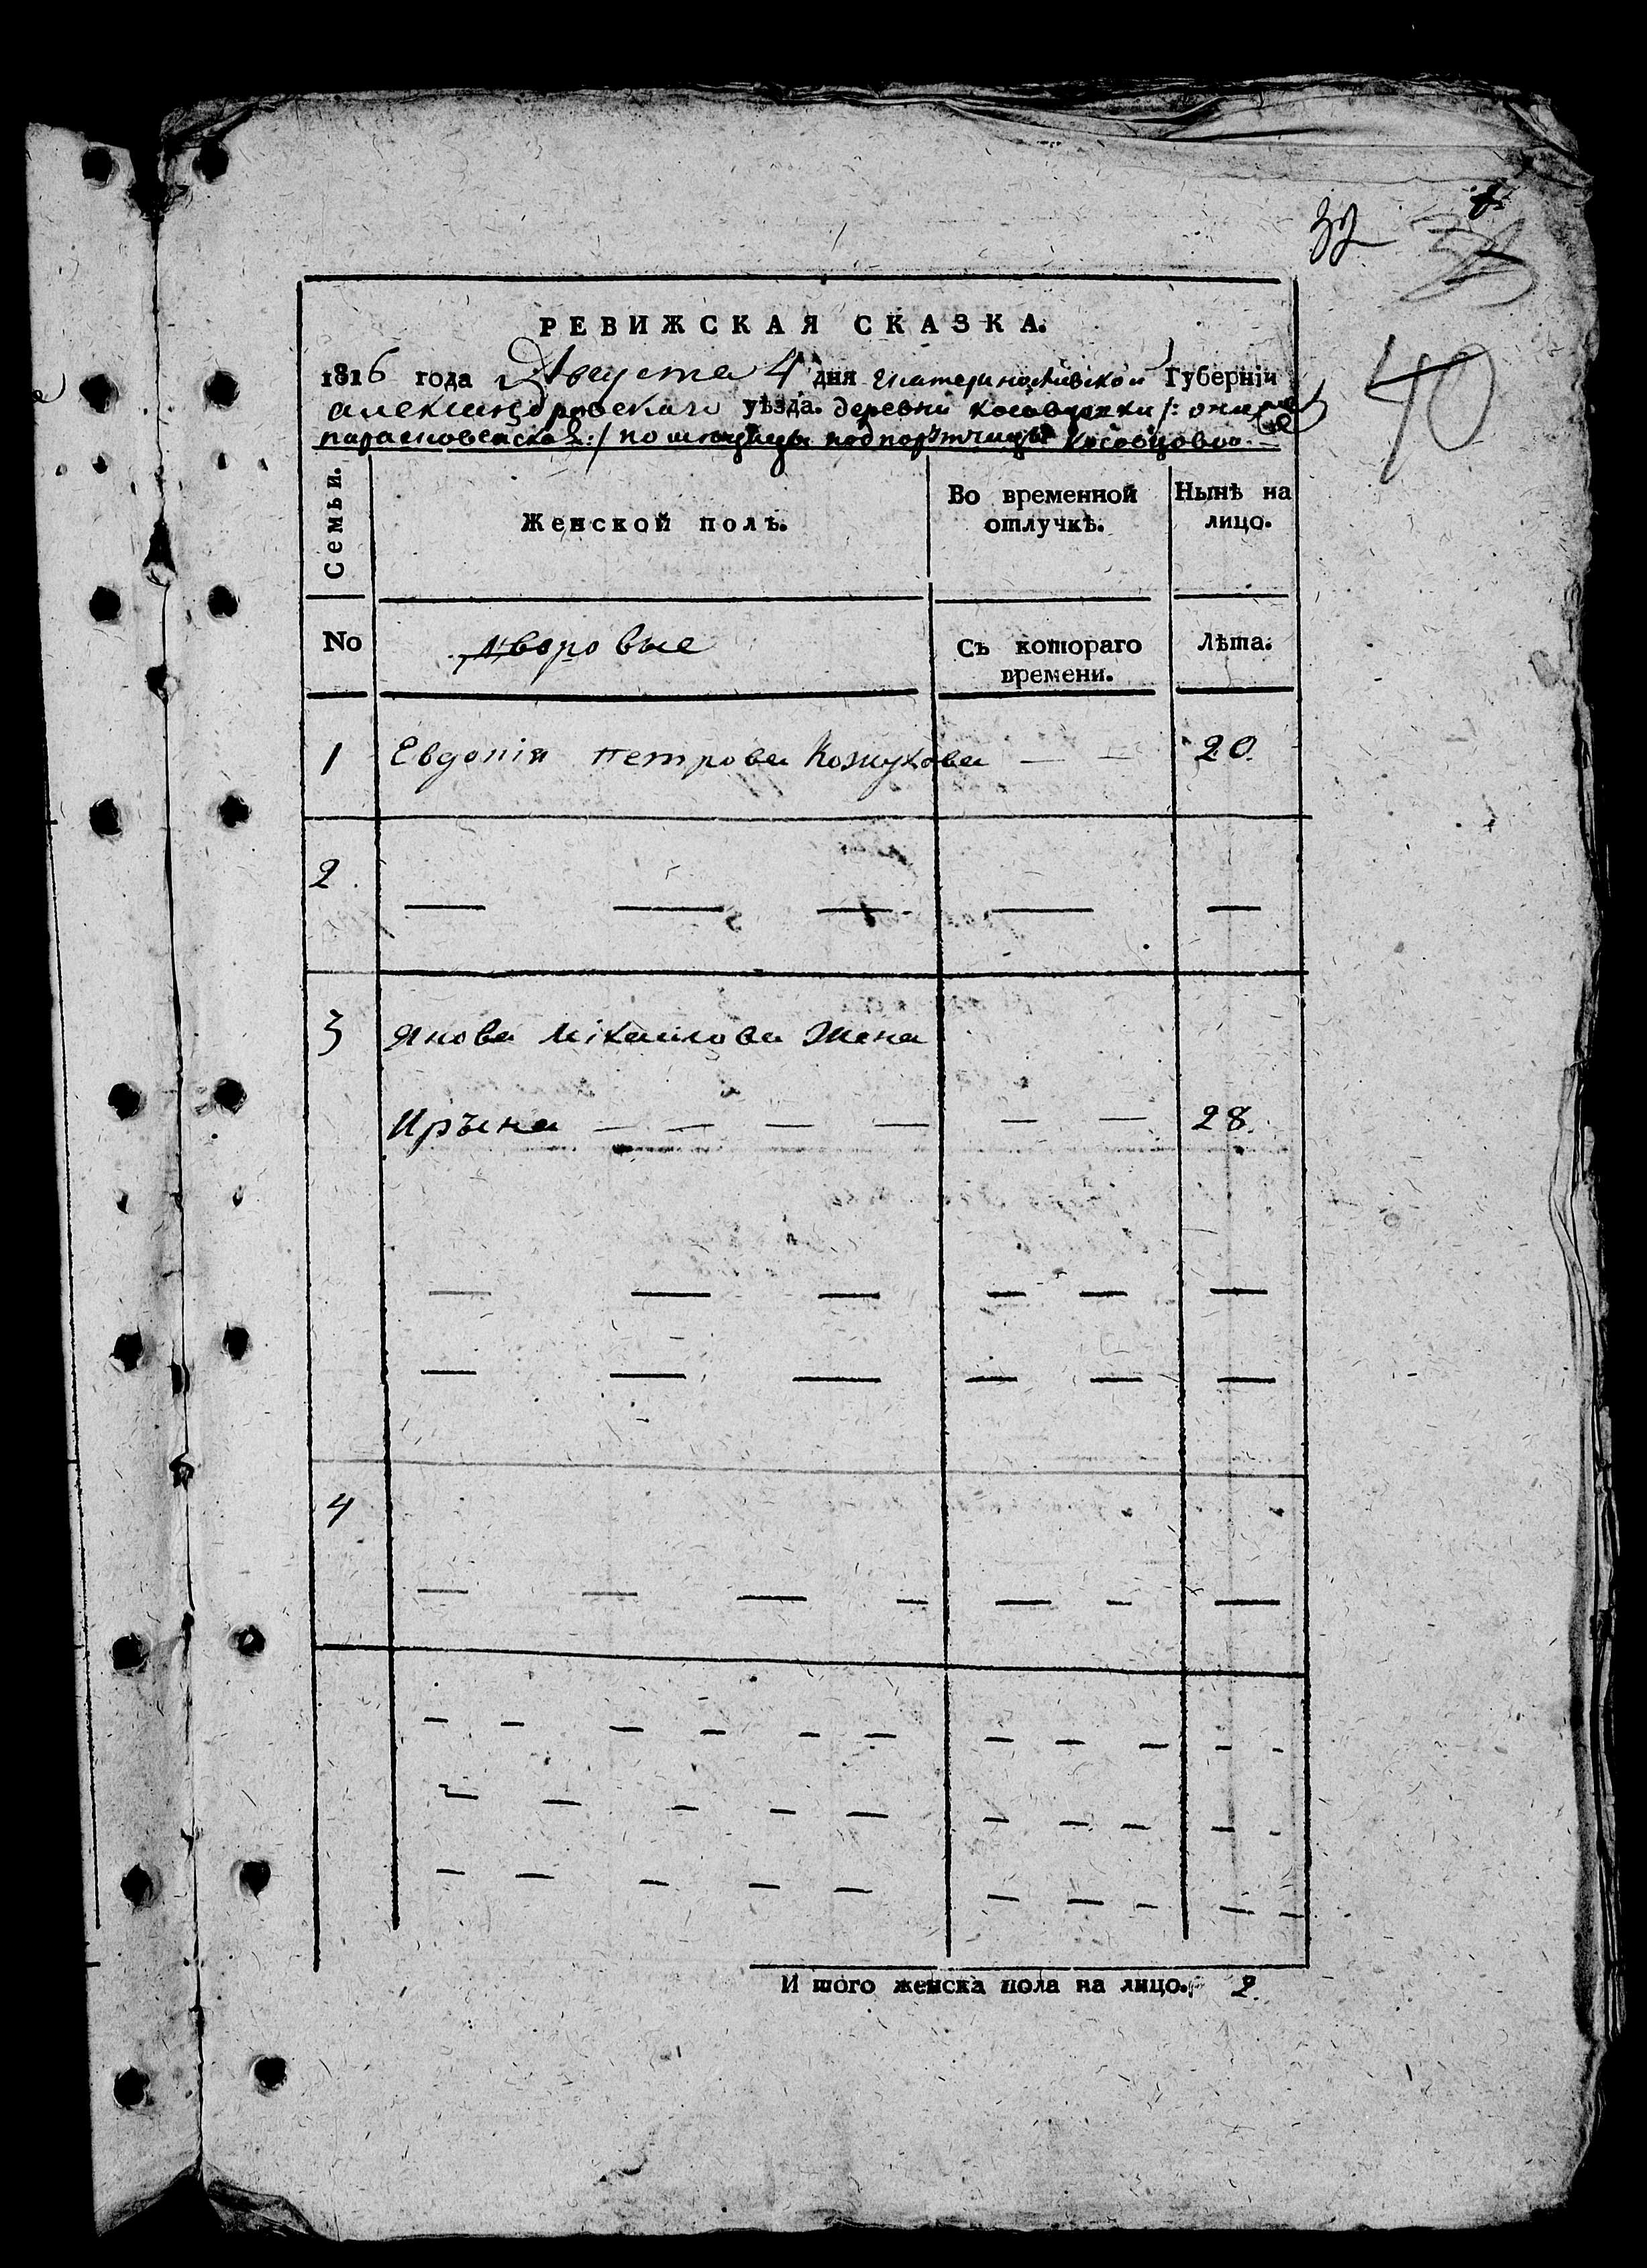 32
40
РЕВИЖСКАЯ СКАЗКА.
1816 года Августа 4 дня Екатеринославской Губерніи
александровскаго уѣзда. деревни /: онаже
:/ помещицы подпорутчицы
Семьи.
Женской полъ.
Во временной отлучкѣ.
Нынѣ на лицо.
No
дворовые
Съ котораго времени.
Лѣта.
1 Евдокія петрова Кожухова — — 20.
2.
3 Якова міхаилова Жена
Ирына — — — — — — 28.
4
И того женска пола на лицо. 2.